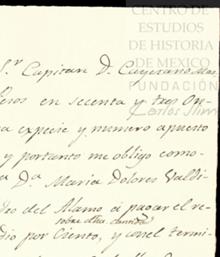 CENTRO DE
ESTUDIOS
DE HISTORIA
DE MEXICO
FUNDACIÓN
Carlos Slim
Sr. Capitan Dn. Cayetano
Pesos en secenta y tres On-
a especie y numero apuesto
y portanto me obligo como
a Da. Maria Dolores Valdi-
del Alamo a pagar el re-
sobre dha. cantidad
dio por Ciento, y con el termi-